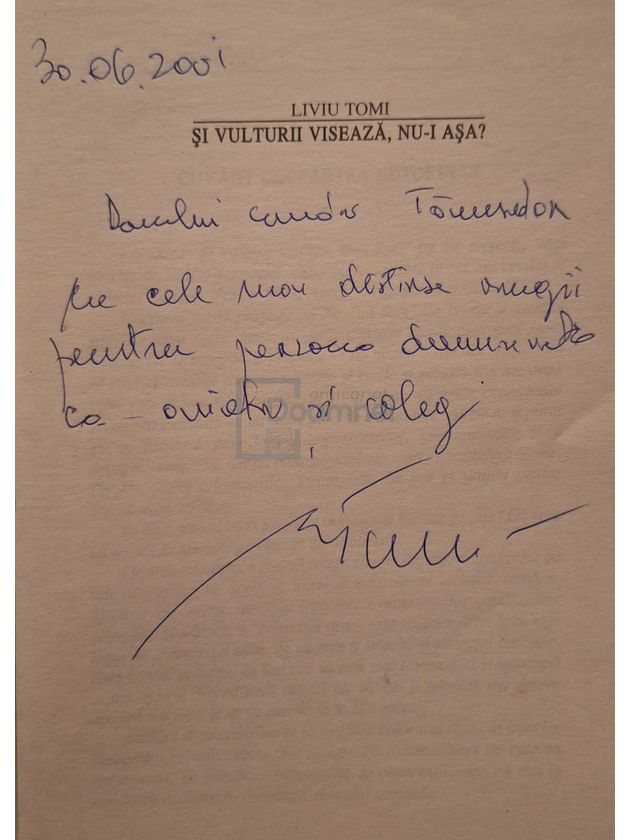 30.06.2001
LIVIU TOMI
ŞI VULTURII VISEAZĂ, NU-I AŞA?
Domnului
cu cele mai distinse omagii
pentru persoana dumneavoastră
ca aviator și coleg
anticariat
Doamnei